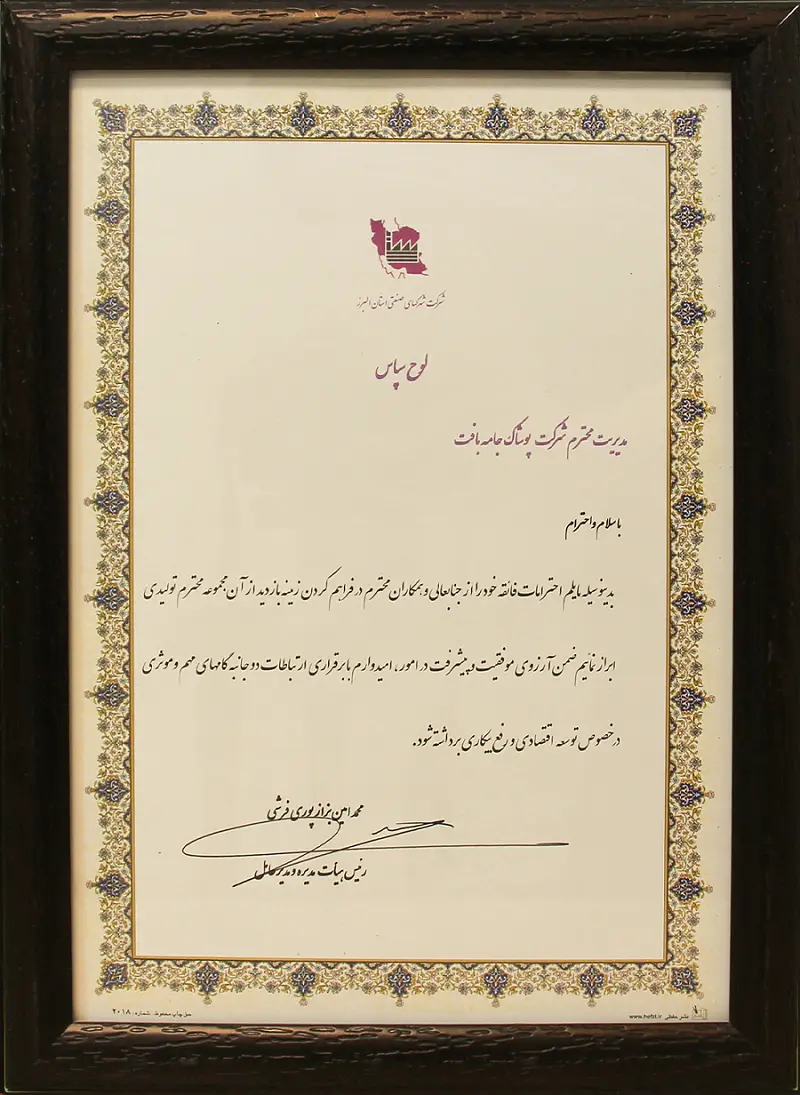 شرکت شهرکهای صنعتی استان البرز
لوح سپاس
مدیریت محترم شرکت پوشاک جامه بافت
با سلام و احترام
بدینوسیله مایلم احترامات فائقه خود را از جنابعالی و همکاران محترم در فراهم کردن زمینه بازدید از آن مجموعه محترم تولیدی
ابراز نمائیم ضمن آرزوی موفقیت و پیشرفت در امور، امیدوارم با برقراری ارتباطات دو جانبه گامهای مهم و موثری
در خصوص توسعه اقتصادی و رفع بیکاری برداشته شود.
محمد امین بزازپوری فرشی
رئیس هیأت مدیره و مدیرعامل
حق چاپ محفوظ شماره: ۲۰۱۸
نشر حفظی www.hefzt.ir